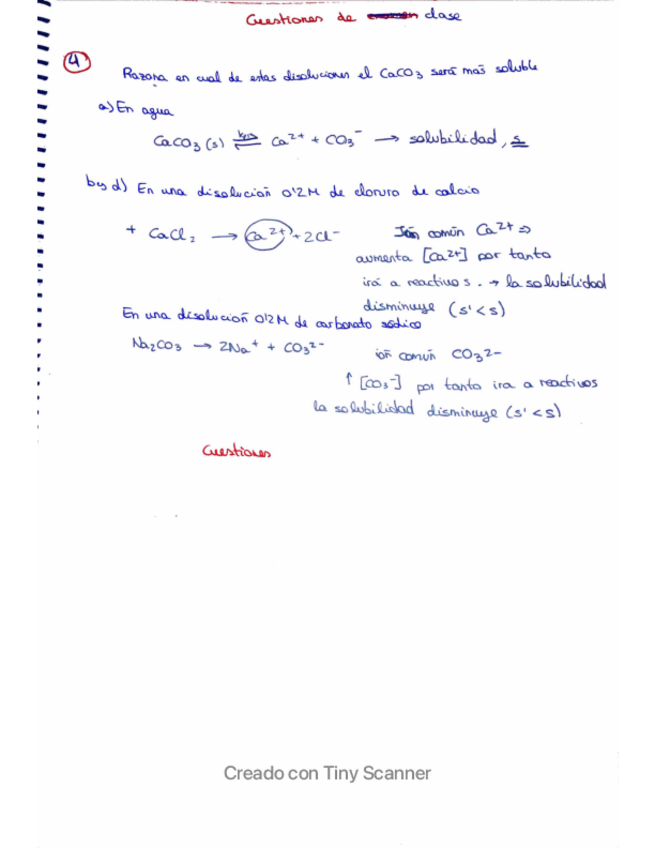 Cuestiones de clase
4
Razona en cual de estas disoluciones el CaCO3 será más soluble
a) En agua
CaCO3 (s) ⇌ Ca2+ + CO3- → solubilidad, s
b y d) En una disolución 0'2M de cloruro de calcio
+ CaCl2 → Ca2+ + 2Cl- Ión común Ca2+ ⇒
aumenta [Ca2+] por tanto
irá a reactivos. → la solubilidad
disminuye (s' < s)
En una disolución 0'2M de carbonato sódico
Na2CO3 → 2Na+ + CO32- ión común CO32-
↑ [CO3-] por tanto ira a reactivos
la solubilidad disminuye (s' < s)
Cuestiones
Creado con Tiny Scanner